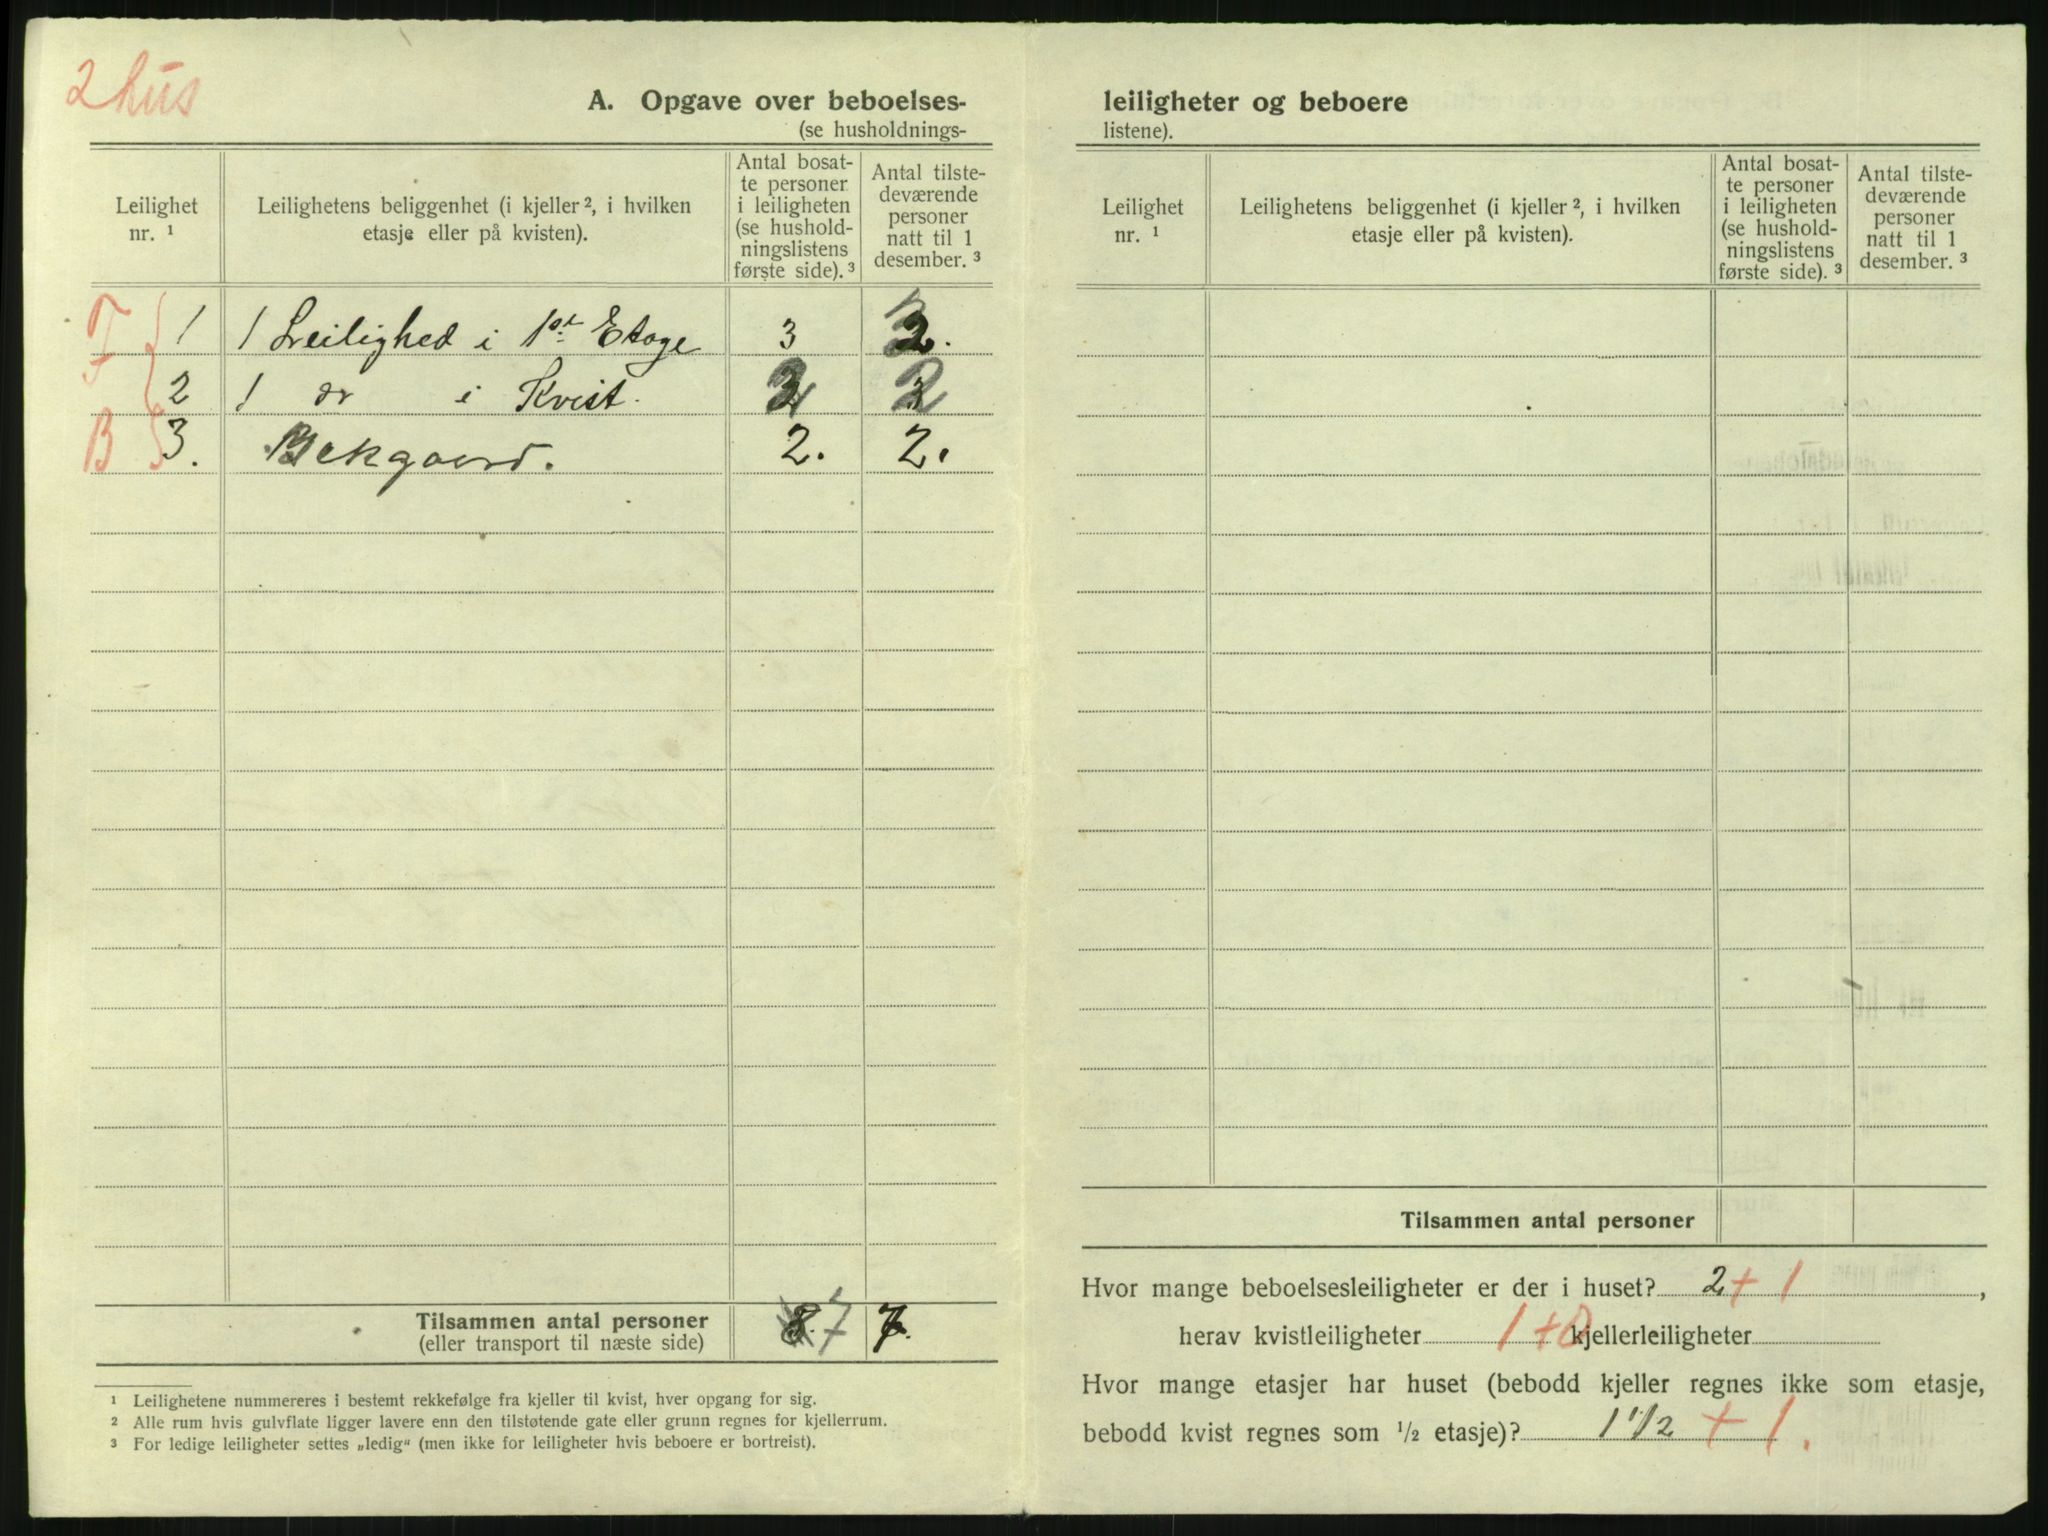 2 hus
A. Opgave over beboelses-
(se husholdnings-
Leilighet nr. ¹
Leilighetens beliggenhet (i kjeller ², i hvilken etasje eller på kvisten).
Antal bosat-
te personer
i leiligheten
(se hushold-
ningslistens
første side). ³
Antal tilste-
deværende
personer
natt til 1
desember. ³
F 1 1 Leilighed i 1ste Etage 3 2.
2 1 do i Kvist. 2 2
B 3. Bakgaard. 2. 2.
Tilsammen antal personer 8. 7 7.
(eller transport til næste side)
¹ Leilighetene nummereres i bestemt rekkefølge fra kjeller til kvist, hver opgang for sig.
² Alle rum hvis gulvflate ligger lavere enn den tilstøtende gate eller grunn regnes for kjellerrum.
³ For ledige leiligheter settes „ledig" (men ikke for leiligheter hvis beboere er bortreist).
leiligheter og beboere
listene).
Leilighet nr. ¹
Leilighetens beliggenhet (i kjeller ², i hvilken etasje eller på kvisten).
Antal bosat-
te personer
i leiligheten
(se hushold-
ningslistens
første side). ³
Antal tilste-
deværende
personer
natt til 1
desember. ³
Tilsammen antal personer
Hvor mange beboelsesleiligheter er der i huset? 2 + 1,
herav kvistleiligheter 1 + 0 kjellerleiligheter
Hvor mange etasjer har huset (bebodd kjeller regnes ikke som etasje,
bebodd kvist regnes som ½ etasje)? 1 1/2 + 1.